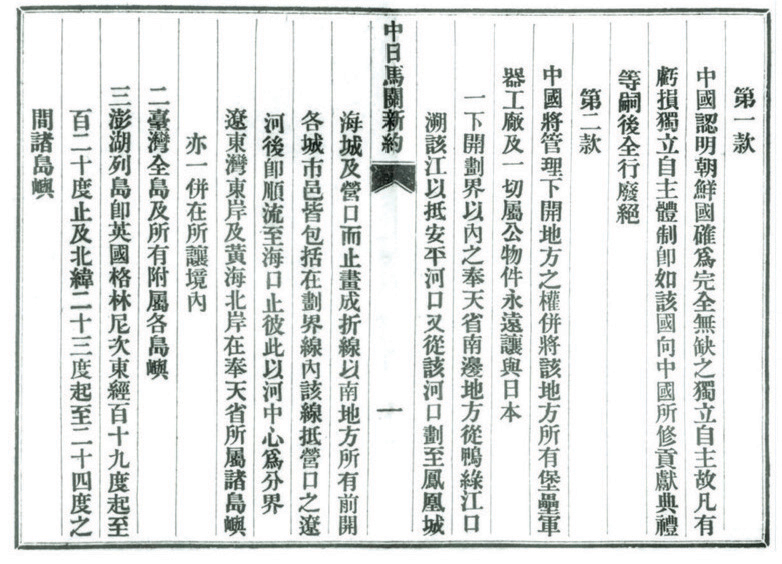 第一款
中國認明朝鮮國確爲完全無缺之獨立自主故凡有
虧損獨立自主體制卽如該國向中國所修貢獻典禮
等嗣後全行廢絕
第二款
中國將管理下開地方之權併將該地方所有堡壘軍
器工廠及一切屬公物件永遠讓與日本
一下開劃界以內之奉天省南邊地方從鴨綠江口
溯該江以抵安平河口又從該河口劃至鳳凰城
中日馬關新約
一
海城及營口而止畫成折線以南地方所有前開
各城市邑皆包括在劃界線內該線抵營口之遼
河後卽順流至海口止彼此以河中心爲分界
遼東灣東岸及黃海北岸在奉天省所屬諸島嶼
亦一併在所讓境內
二臺灣全島及所有附屬各島嶼
三澎湖列島卽英國格林尼次東經百十九度起至
百二十度止及北緯二十三度起至二十四度之
間諸島嶼